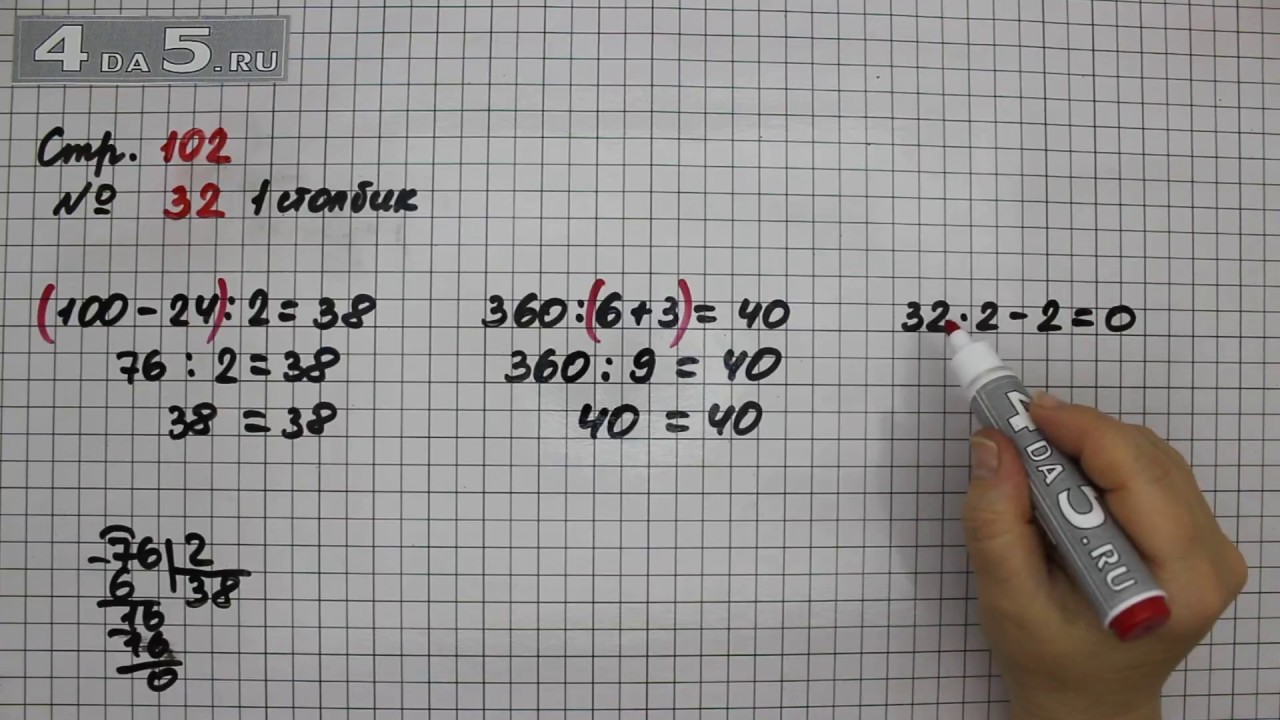 4DA5.RU
Стр. 102
№ 32 1 столбик
(100 - 24) : 2 = 38
76 : 2 = 38
38 = 38
360 : (6 + 3) = 40
360 : 9 = 40
40 = 40
32 · 2 - 2 = 0
4DA5.RU
-76 | 2
6 38
16
-16
0